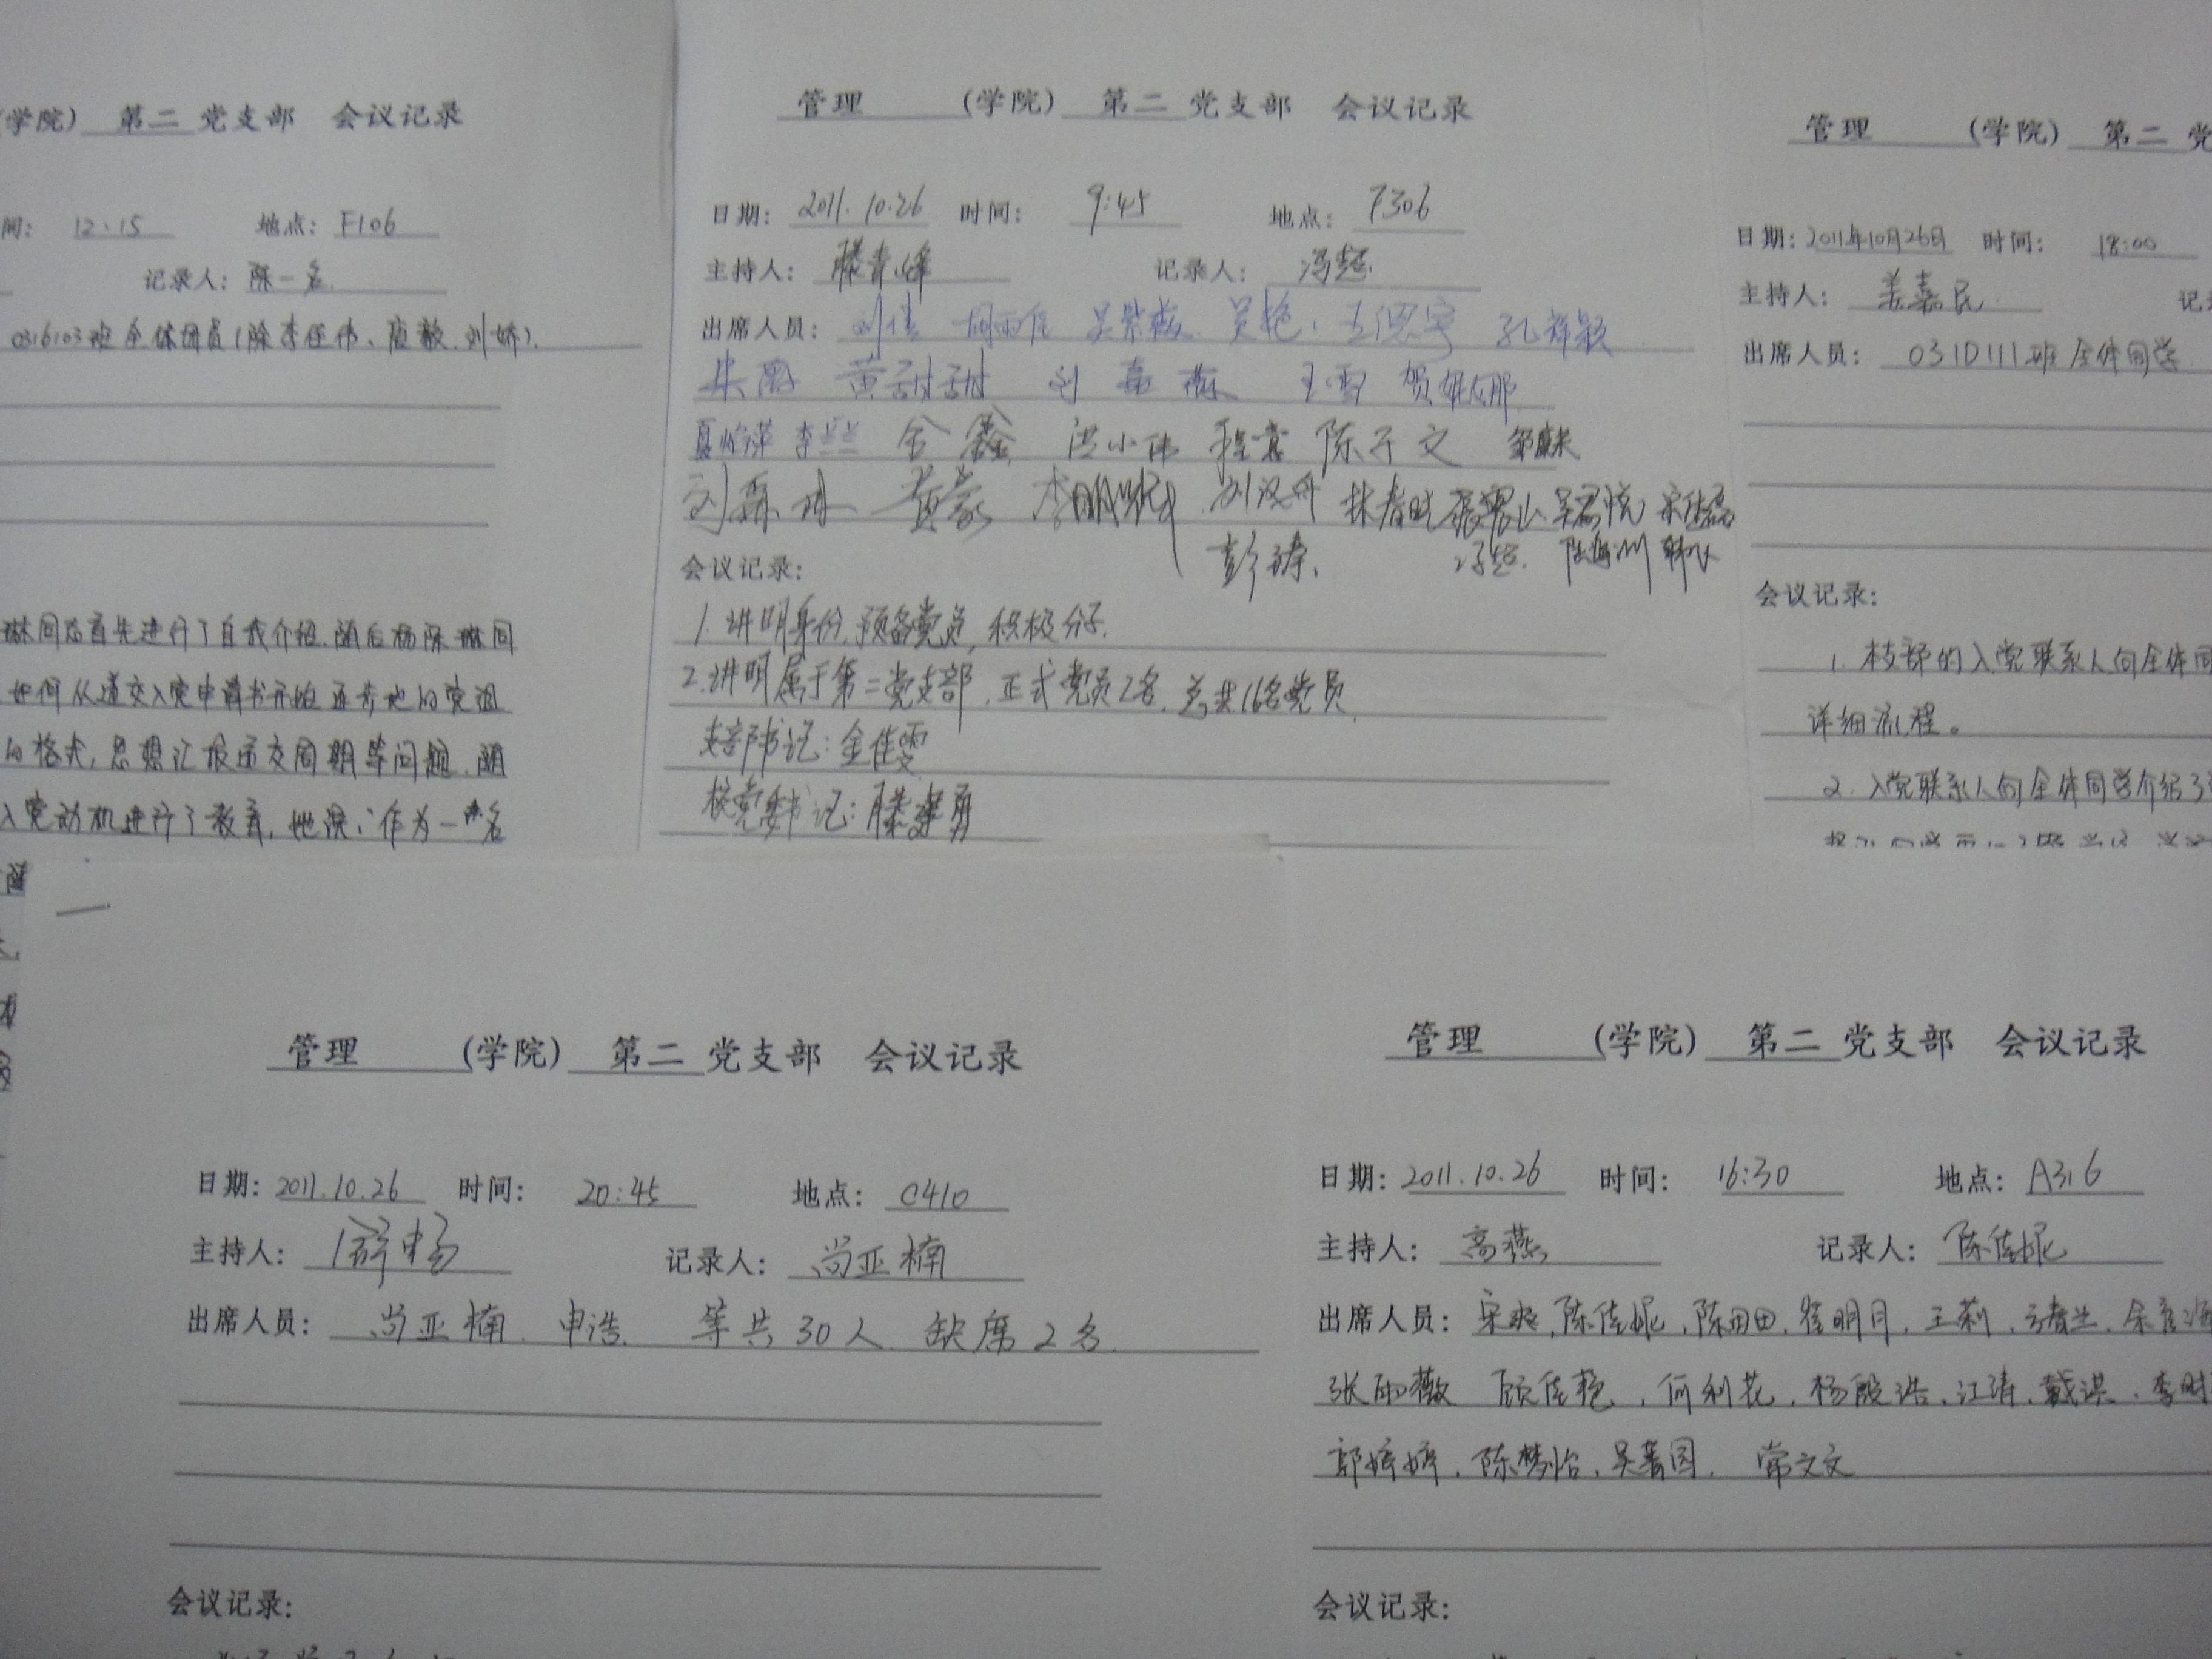 (学院) 第二 党支部 会议记录
间: 12:15 地点: F106
记录人: 陈一名
0316103班全体团员(除李任伟、唐毅、刘娇).
琳同志首先进行了自我介绍.随后杨陈琳同
如何从递交入党申请书开始逐步地向党组
的格式,思想汇报递交周期等问题.随
入党动机进行了教育,她说:作为一名
管理 (学院) 第二 党支部 会议记录
日期: 2011.10.26 时间: 9:45 地点: F306
主持人: 滕青峰 记录人: 冯超
出席人员: 刘倩 胡雨佳 吴紫薇 吴艳 王思宇 孔祥颖
朱丽 黄甜甜 刘嘉燕 王雪 贺娜
夏怡萍 李兰兰 金鑫 洪小伟 程意 陈于文
刘霖琳 黄豪 李明 刘汉舟 林春 吴君悦 宋佳磊
彭涛. 冯超. 陈海川 韩
会议记录:
1.讲明身份,预备党员,积极分子.
2.讲明属于第二党支部.正式党员2名.总共16名党员.
支部书记:金佳雯
校党委书记:滕建勇
管理 (学院) 第二 党
日期: 2011年10月26日 时间: 18:00
主持人: 姜嘉民 记
出席人员: 031D111班全体同学
会议记录:
1. 本支部的入党联系人向全体同
详细流程。
2. 入党联系人向全体同学介绍了
管理 (学院) 第二 党支部 会议记录
日期: 2011.10.26 时间: 20:45 地点: C410
主持人: 薛畅 记录人: 尚亚楠
出席人员: 尚亚楠. 申浩. 等共30人. 缺席2名.
会议记录:
管理 (学院) 第二 党支部 会议记录
日期: 2011.10.26 时间: 16:30 地点: A316
主持人: 高燕 记录人: 陈佳妮
出席人员: 宋爽,陈佳妮,陈田田,崔明月,王莉,
张雨薇 顾佳艳,何利花,杨殷浩,江涛,戴淇,李
郭婷婷,陈梦怡,吴菁园. 常文文
会议记录: